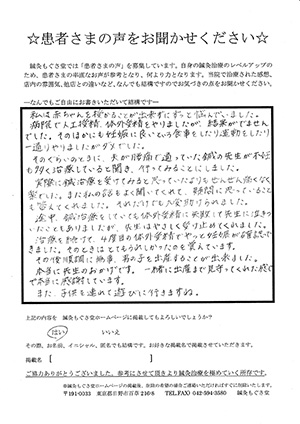 ☆患者さまの声をお聞かせください☆
鍼灸もぐさ堂では「患者さまの声」を募集しています。自身の鍼灸治療のレベルアップの
ため、患者さまの率直なお声が参考となり、何より力となります。当院で治療された感想、
店内の雰囲気、他店との違いなど、なんでも結構ですのでお気づきの点をお聞かせください。
―なんでもご自由にお書きいただいて結構です―
私は赤ちゃんを授かることが出来ずにずっと悩んでいました。
病院で人工授精、体外受精をやりましたが、結果がでません
でした。そのほかにも妊娠に良いという食事をしたり運動をしたり
一通りやりましたがダメでした。
そのぐらいのときに、夫が腰痛で通っていた鍼の先生が不妊
も多く治療していると聞き、行ってみることにしました。
実際に鍼治療を受けてみると思っていたよりもぜんぜん痛くなく
楽でした。また私の話をよく聞いてくれて、疑問に思っていること
も答えてくれました。それだけでも大変助けられました。
途中、鍼治療をしていても体外受精に失敗して先生に泣きつ
いたこともありましたが、先生はやさしく受け止めてくれました。
治療を続けて、4度目の体外受精でやっと妊娠が確認で
きました。そのときはとてもうれしかったのを覚えています。
その後順調に無事、男の子を出産することが出来ました。
本当に先生のおかげです。一緒に出産まで見守ってくれた感じ
で本当に感謝しています。
また、子供を連れて遊びに行きますね。
上記の内容を 鍼灸もぐさ堂ホームページに掲載してもよろしいでしょうか?
はい いいえ
その際、お名前、イニシャル、匿名でも結構です。お好きな掲載名で掲載させていただきます。
掲載名 [ ]
ご協力ありがとうございました。参考にさせて頂きより鍼灸治療を極めていく所存です。
※鍼灸もぐさ堂ホームページ掲載後、依頼の希望の場合ご連絡いただければすぐに削除いたします。
〒191-0033 東京都日野市百草 TEL.FAX 042-594-3580 鍼灸もぐさ堂